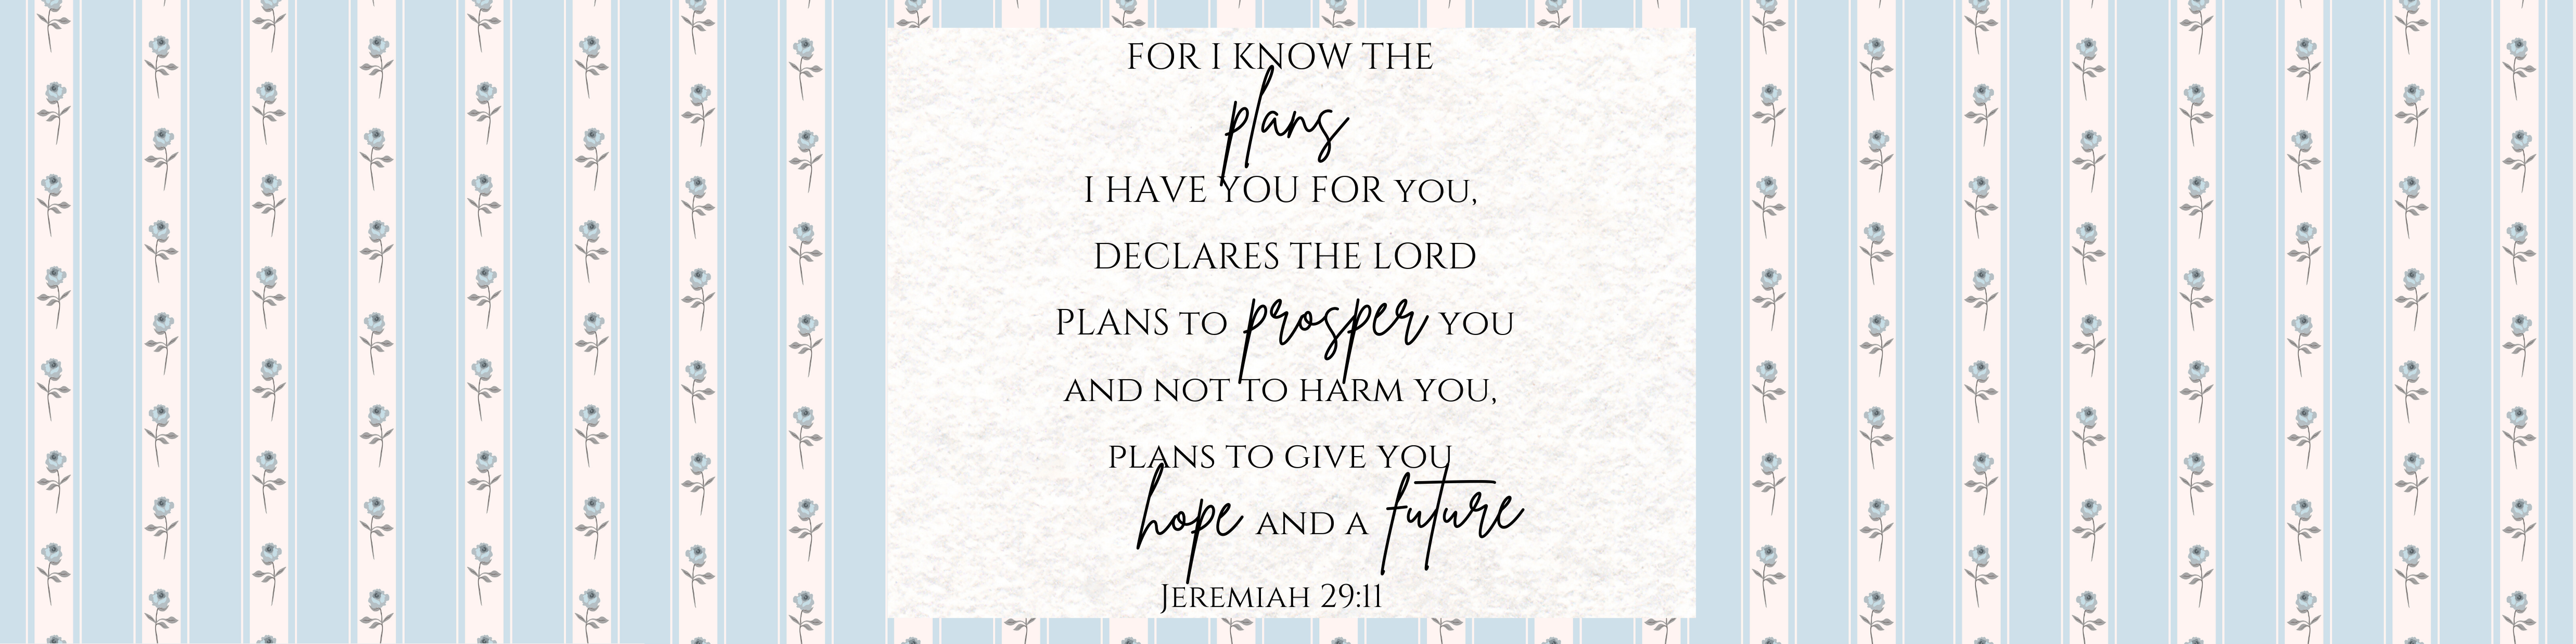 FOR I KNOW THE
plans
I HAVE YOU FOR YOU,
DECLARES THE LORD
PLANS TO prosper YOU
AND NOT TO HARM YOU,
PLANS TO GIVE YOU
hope AND A future
JEREMIAH 29:11